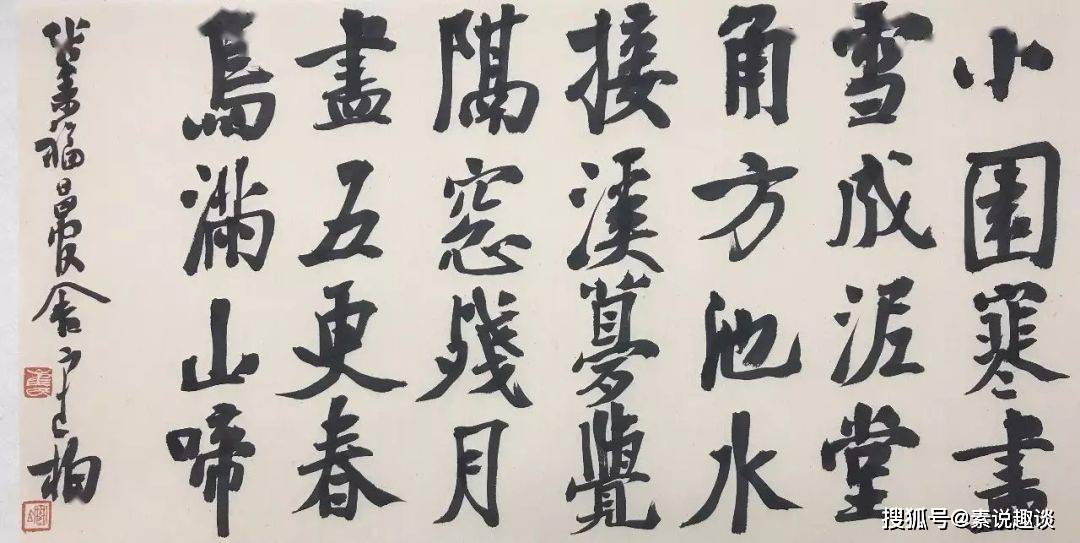 小園寒盡
雪成泥堂
角方池水
接溪夢覺
隔窓殘月
盡五更春
鳥滿山啼
搜狐号@素说趣谈